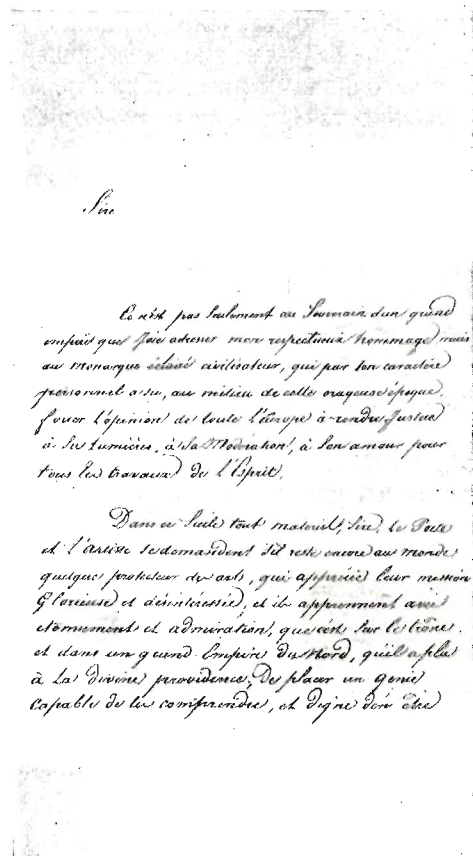 Sire
Ce n'est pas seulement au Souverain d'un grand
empire que j'ose adresser mon respectueux hommage mais
au monarque éclairé civilisateur, qui par son caractère
personnel a su, au milieu de cette orageuse époque,
forcer l'opinion de toute l'Europe à rendre Justice
à Ses Lumières, à Sa Modération, à Son amour pour
tous les travaux de l'Esprit.
Dans ce Siècle tout matériel, Sire, le Poete
et l'artiste se demandent s'il reste encore au monde
quelques protecteur des arts, qui apprécie leur mission
Glorieuse et désintéressée, et ils apprennent avec
etonnement et admiration, que c'est Sur le trône
et dans un grand Empire du Nord, qu'il a plu
à La divine providence, De placer un génie
capable de les comprendre, et digne d'en être